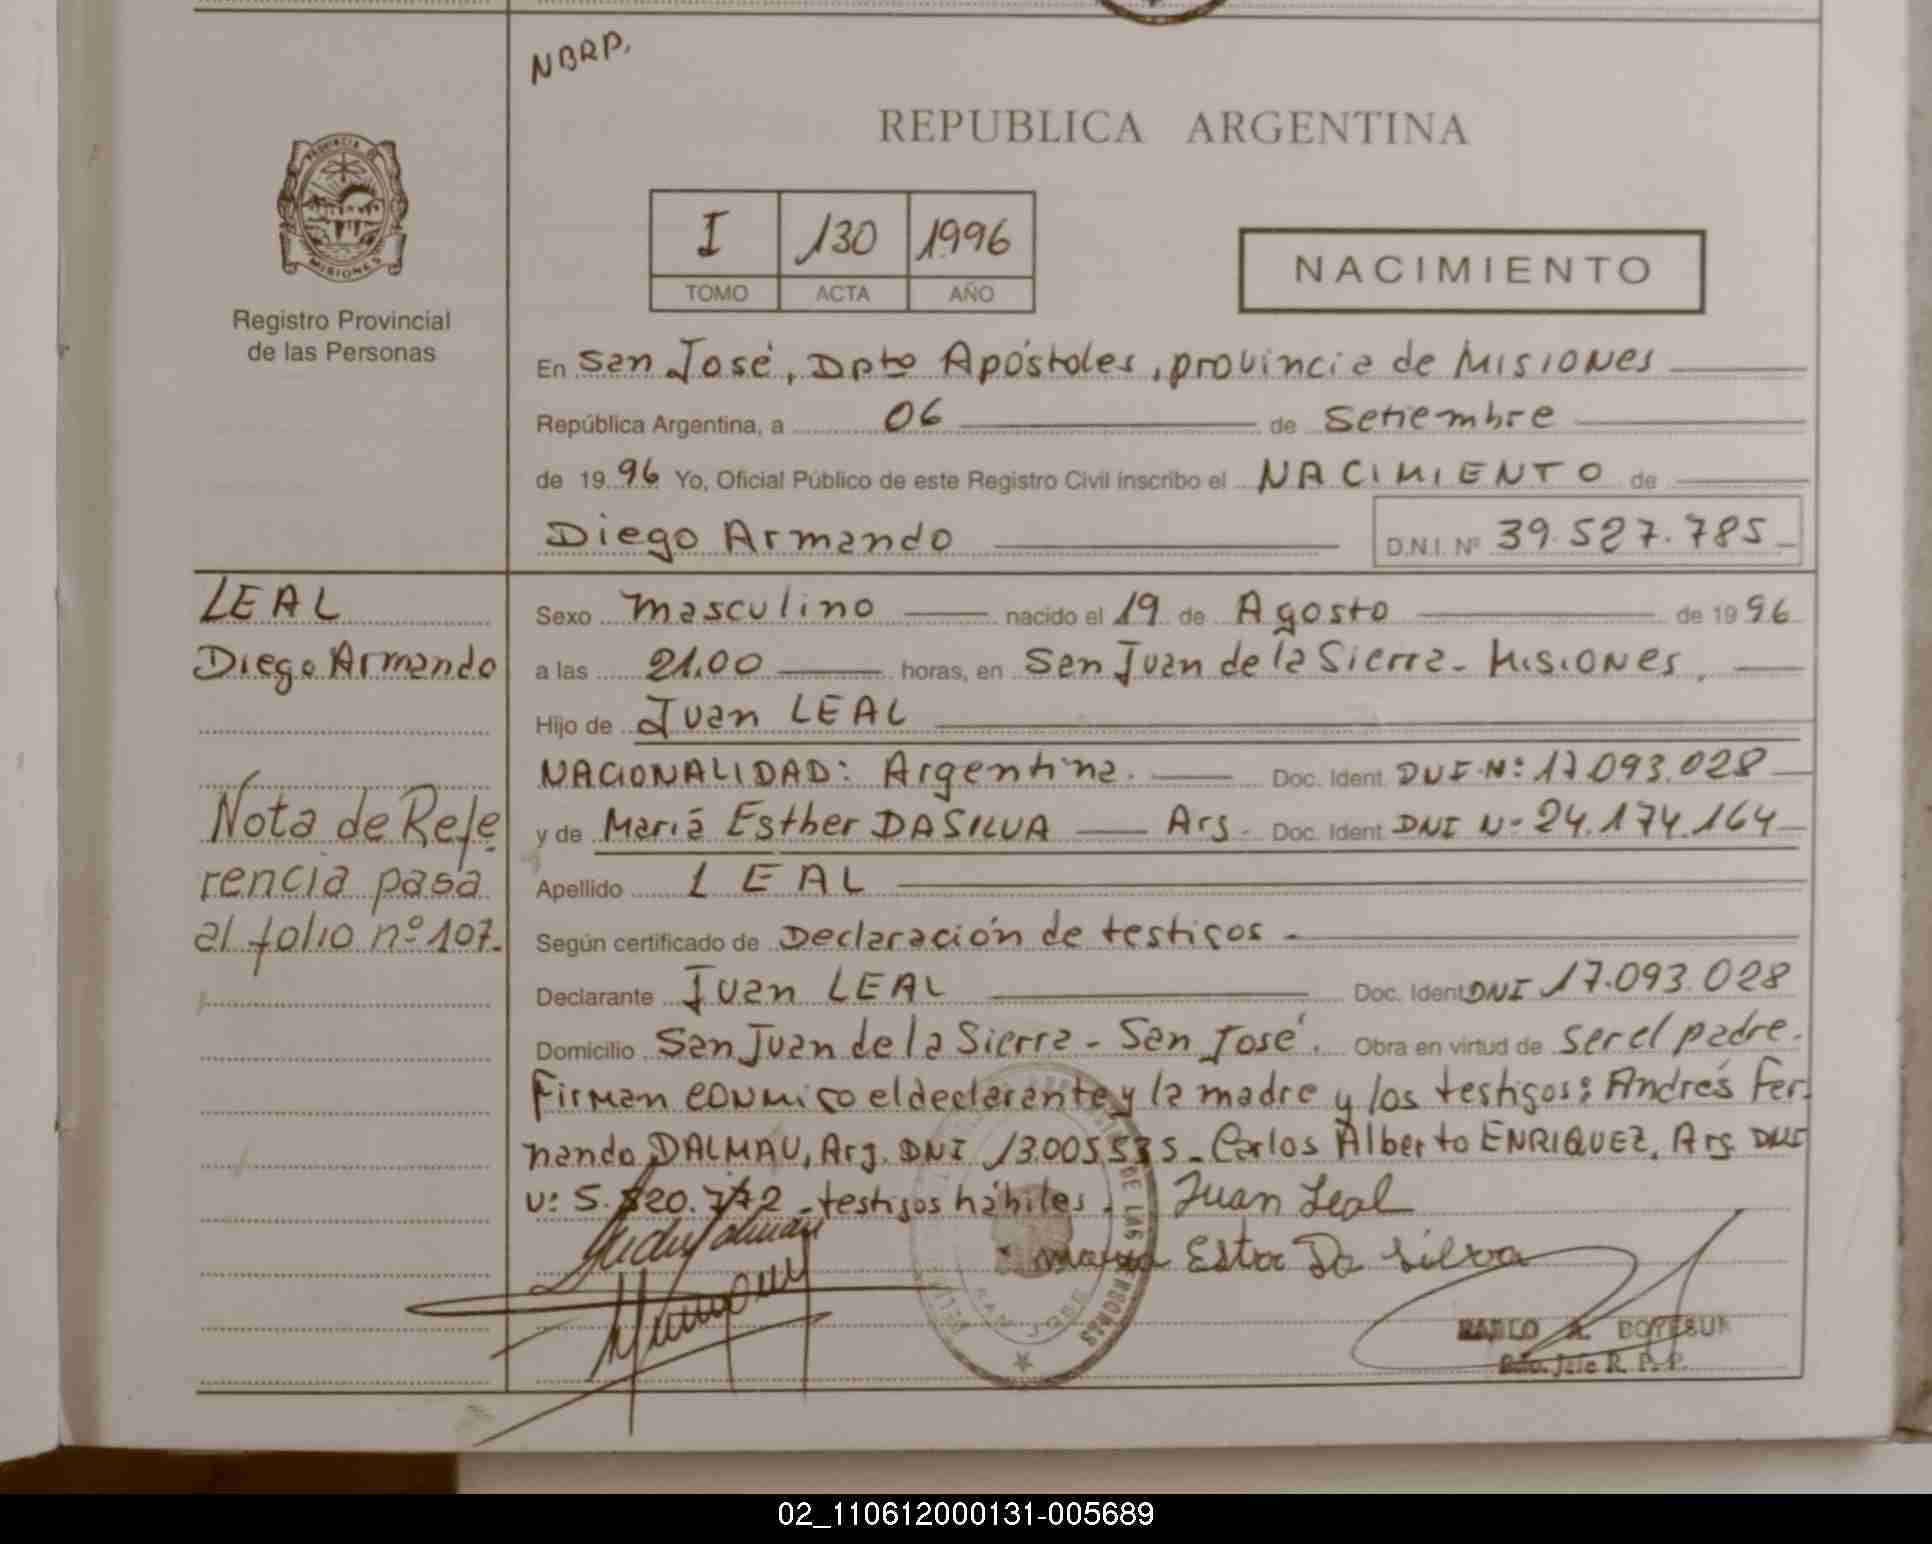 NBRP.
REPUBLICA ARGENTINA
PROVINCIA DE
MISIONES
I 130 1996
TOMO ACTA AÑO
NACIMIENTO
Registro Provincial
de las Personas
En San José, Dpto Apóstoles, provincia de MISIONES
República Argentina, a 06 de Setiembre
de 19 96 Yo, Oficial Público de este Registro Civil inscribo el NACIMIENTO de
Diego Armando D.N.I. Nº 39.527.785
LEAL
Diego Armando
Nota de Refe
rencia pasa
al folio nº 107.
Sexo masculino nacido el 19 de Agosto de 19 96
a las 21.00 horas, en San Juan de la Sierra - MISIONES.
Hijo de Juan LEAL
NACIONALIDAD: Argentina. Doc. Ident. DNI Nº: 17.093.028
y de Mariá Esther DASILVA Arg. Doc. Ident. DNI Nº 24.174.164
Apellido LEAL
Según certificado de Declaración de testigos -
Declarante Juan LEAL Doc. Ident DNI 17.093.028
Domicilio San Juan de la Sierra - San José. Obra en virtud de ser el padre.
Firman conmigo el declarante y la madre y los testigos: Andrés Fer
nando DALMAU, Arg. DNI 13.005.535 - Carlos Alberto ENRIQUEZ, Arg. DNI
Nº: 5.820.772 - testigos hábiles.
Juan Leal
Maria Ester Da Silva
DE LAS PERSONAS
SAN JOSE
PABLO A. BOYESUK
R. P. P.
02_110612000131-005689